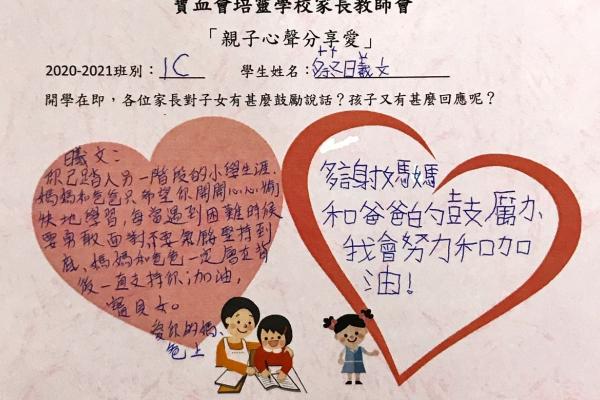 寶血會培靈學校家長教師會
「親子心聲分享愛」
2020-2021班別：1C 學生姓名：蔡曦文
開學在即，各位家長對子女有甚麼鼓勵說話？孩子又有甚麼回應呢？
曦文：
你已踏入另一階段的小學生涯，
媽媽和爸爸只希望你開開心心愉
快地學習，每當遇到困難時候
要勇敢面對，不要氣餒堅持到
底，媽媽和爸爸一定會在背
後一直支持你，加油，
寶貝女。
愛你的媽、
爸上
多謝媽媽
和爸爸的鼓厲力
我會努力和加
油！